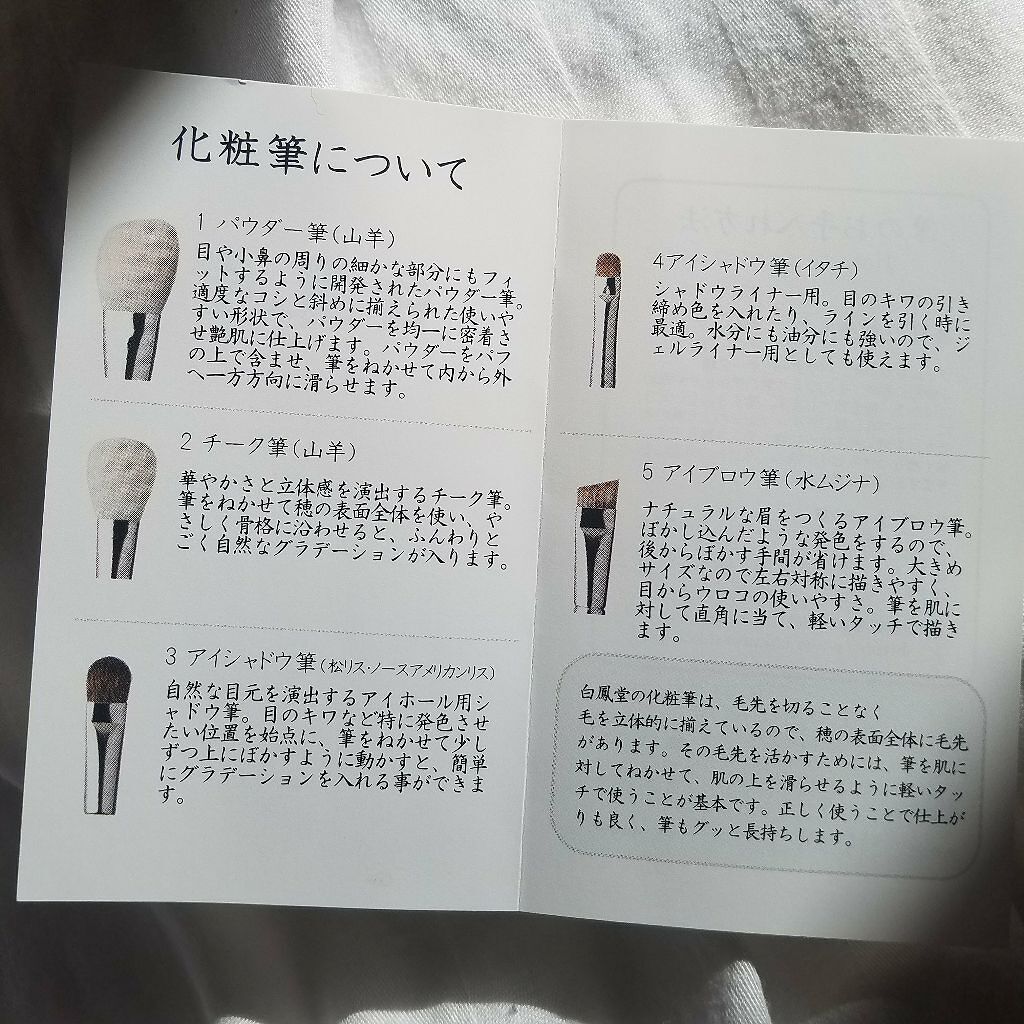 化粧筆について
1 パウダー筆(山羊)
目や小鼻の周りの細かな部分にもフィ
ットするように開発されたパウダー筆。
適度なコシと斜めに揃えられた使いや
すい形状で、パウダーを均一に密着さ
せ艶肌に仕上げます。パウダーをパフ
の上で含ませ、筆をねかせて内から外
へ一方方向に滑らせます。
2 チーク筆(山羊)
華やかさと立体感を演出するチーク筆。
筆をねかせて穂の表面全体を使い、や
さしく骨格に沿わせると、ふんわりと
ごく自然なグラデーションが入ります。
3 アイシャドウ筆(松リス・ノースアメリカンリス)
自然な目元を演出するアイホール用シ
ャドウ筆。目のキワなど特に発色させ
たい位置を始点に、筆をねかせて少し
ずつ上にぼかすように動かすと、簡単
にグラデーションを入れる事ができま
す。
4アイシャドウ筆(イタチ)
シャドウライナー用。目のキワの引き
締め色を入れたり、ラインを引く時に
最適。水分にも油分にも強いので、ジ
ェルライナー用としても使えます。
5 アイブロウ筆(水ムジナ)
ナチュラルな眉をつくるアイブロウ筆。
ぼかし込んだような発色をするので、
後からぼかす手間が省けます。大きめ
サイズなので左右対称に描きやすく、
目からウロコの使いやすさ。筆を肌に
対して直角に当て、軽いタッチで描き
ます。
白鳳堂の化粧筆は、毛先を切ることなく
毛を立体的に揃えているので、穂の表面全体に毛先
があります。その毛先を活かすためには、筆を肌に
対してねかせて、肌の上を滑らせるように軽いタッ
チで使うことが基本です。正しく使うことで仕上が
りも良く、筆もグッと長持ちします。